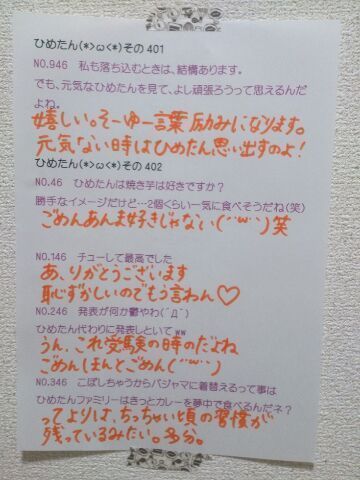 ひめたん(*>ω<*)その401
NO.946 私も落ち込むときは、結構あります。
でも、元気なひめたんを見て、よし頑張ろうって思えるんだ
よね。
嬉しい。そーゆー言葉励みになります。
元気ない時はひめたん思い出すのよ!
ひめたん(*>ω<*)その402
NO.46 ひめたんは焼き芋は好きですか?
勝手なイメージだけど…2個くらい一気に食べそうだね(笑)
ごめんあんま好きじゃない(´ー`)笑
NO.146 チューして最高でした
あ、りがとうございます
恥ずかしいのでもう言わん♡
NO.246 発表が何か鬱やわ(´Д`)
ひめたん代わりに発表しといてww
うん、これ受験の時のだよね
ごめんほんとごめん(´ー`)
NO.346 こぼしちゃうからパジャマに着替えるって事は
ひめたんファミリーはきっとカレーを夢中で食べるんだネ?
ってよりは、ちっちゃい頃の習慣が
残っているみたい。多分。